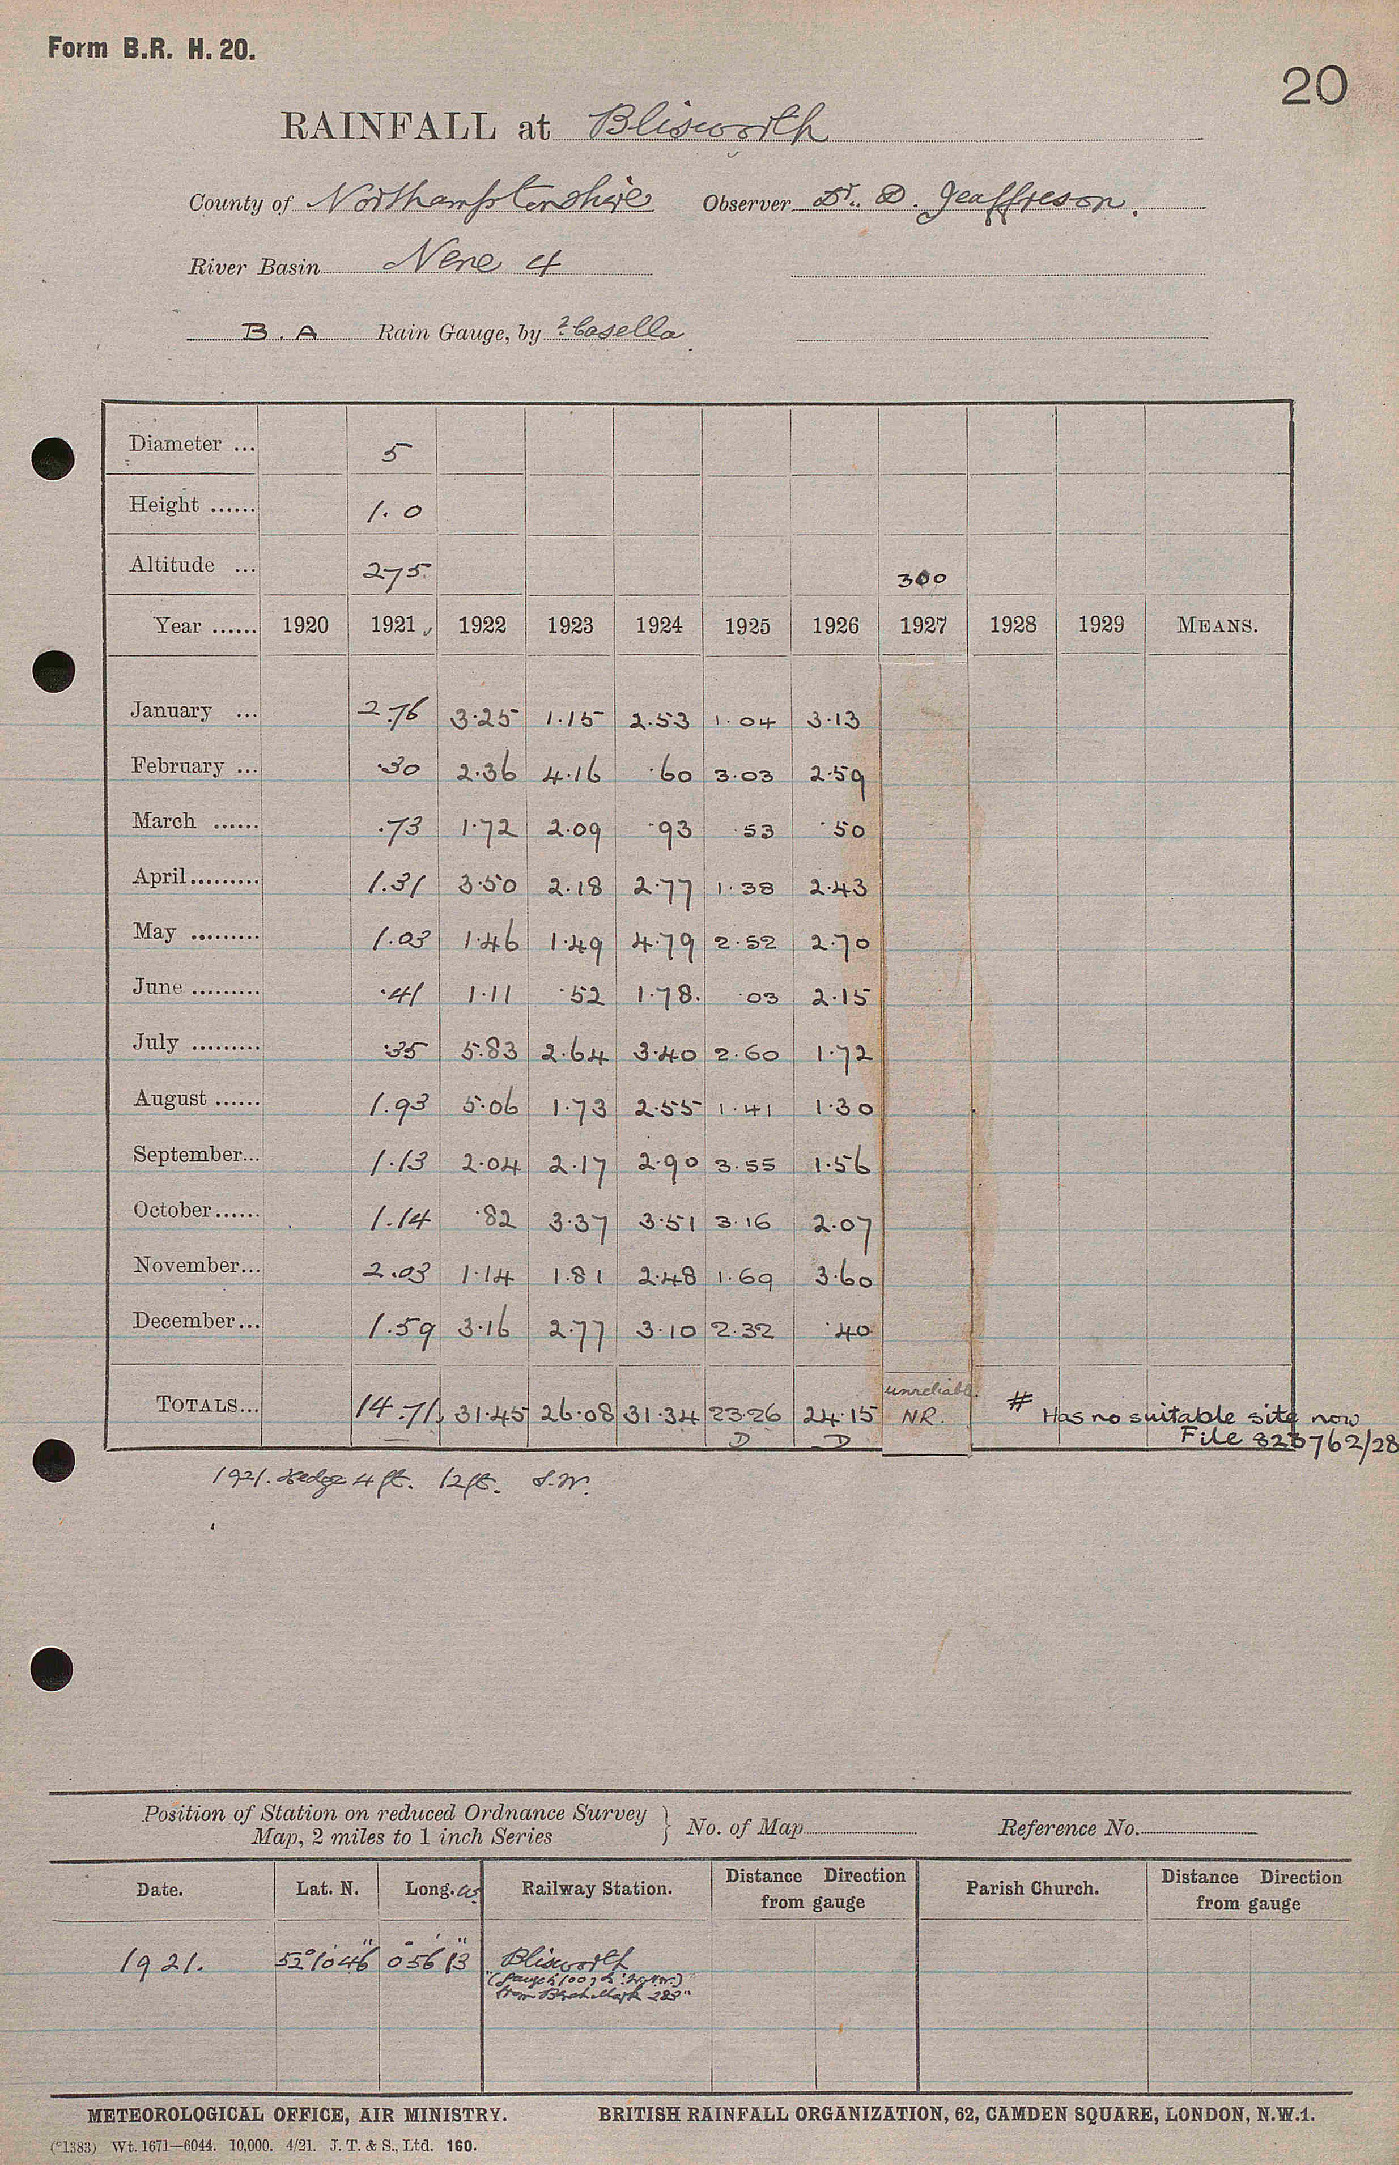 Form B.R. H. 20.
20
RAINFALL at Blisworth
County of Northamptonshire Observer Dr. D. Jeaffreson.
River Basin Nene 4
B. A Rain Gauge, by ? Casella
Diameter ... 5
Height ...... 1.0
Altitude ... 275 300
Year ...... 1920 1921 1922 1923 1924 1925 1926 1927 1928 1929 MEANS.
January ... 2.76 3.25 1.15 2.53 1.04 3.13
February ... .30 2.36 4.16 .60 3.03 2.59
March ...... .73 1.72 2.09 .93 .53 .50
April ......... 1.31 3.50 2.18 2.77 1.38 2.43
May ......... 1.03 1.46 1.49 4.79 2.52 2.70
June ......... .41 1.11 .52 1.78 .03 2.15
July ......... .35 5.83 2.64 3.40 2.60 1.72
August ...... 1.93 5.06 1.73 2.55 1.41 1.30
September... 1.13 2.04 2.17 2.90 3.55 1.56
October...... 1.14 .82 3.37 3.51 3.16 2.07
November... 2.03 1.14 1.81 2.48 1.69 3.60
December... 1.59 3.16 2.77 3.10 2.32 .40
unreliable
TOTALS... 14.71 31.45 26.08 31.34 23.26 24.15 NR. # Has no suitable site now
D D File 823762/28
1921. Hedge 4 ft. 12 ft. S.W.
Position of Station on reduced Ordnance Survey
Map, 2 miles to 1 inch Series } No. of Map Reference No.
Date. Lat. N. Long. W. Railway Station. Distance Direction from gauge Parish Church. Distance Direction from gauge
1921. 52° 10' 46" 0° 56' 13" Blisworth
from Bench Mark 283"
METEOROLOGICAL OFFICE, AIR MINISTRY. BRITISH RAINFALL ORGANIZATION, 62, CAMDEN SQUARE, LONDON, N.W.1.
(*1383) Wt. 1671—6044. 10,000. 4/21. J. T. & S., Ltd. 160.